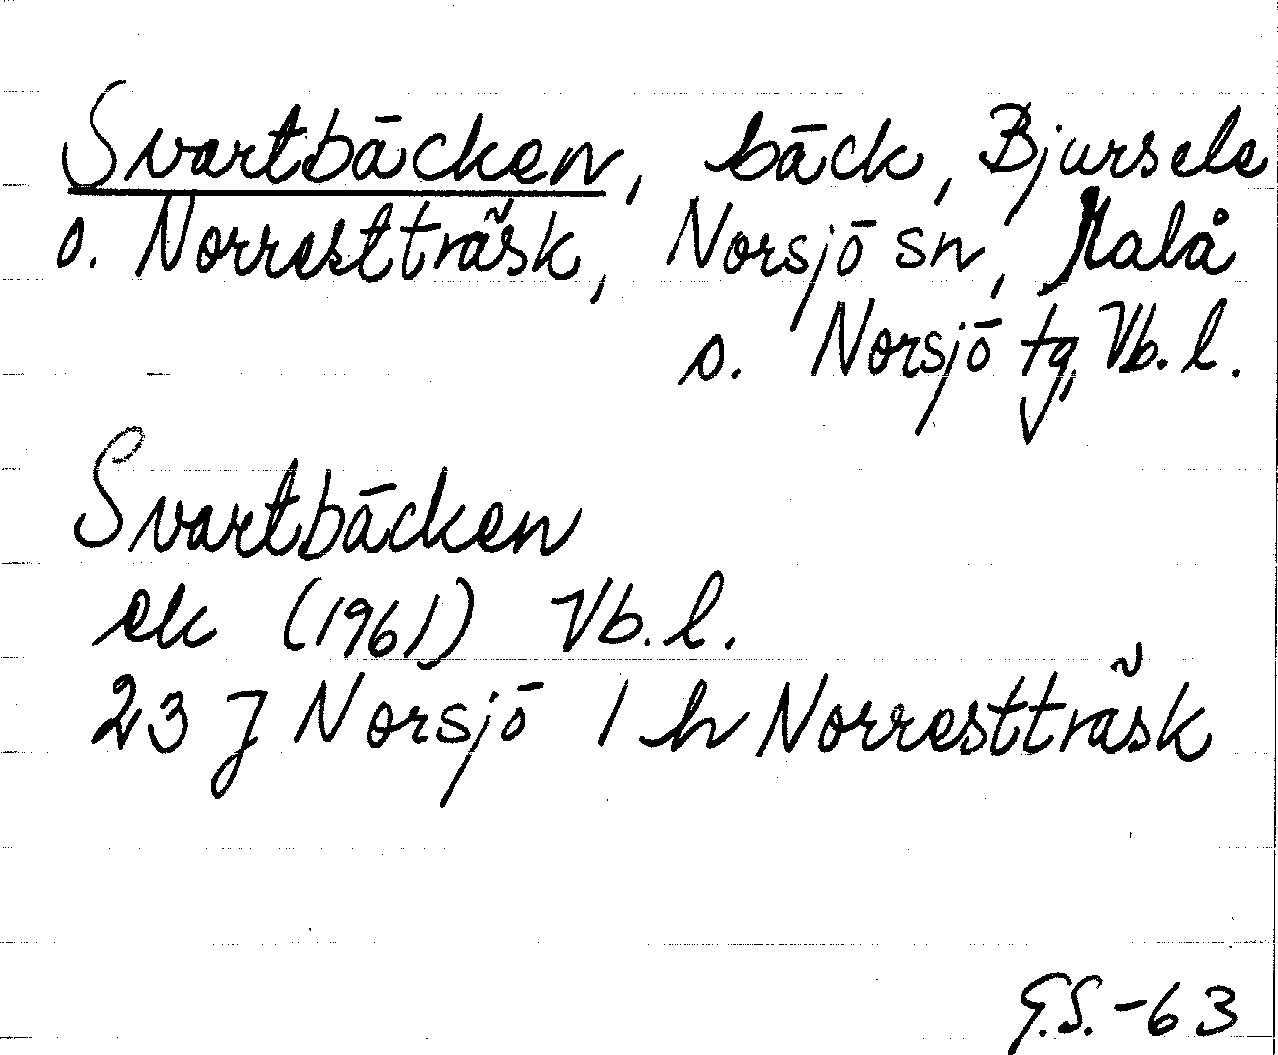 Svartbäcken, bäck, Bjursele
o. Norrestträsk, Norsjö sn, Malå
o. Norsjö tg, Vb. l.
Svartbäcken
ek (1961) Vb. l.
23 J Norsjö 1 h Norrestträsk
G.S. -63